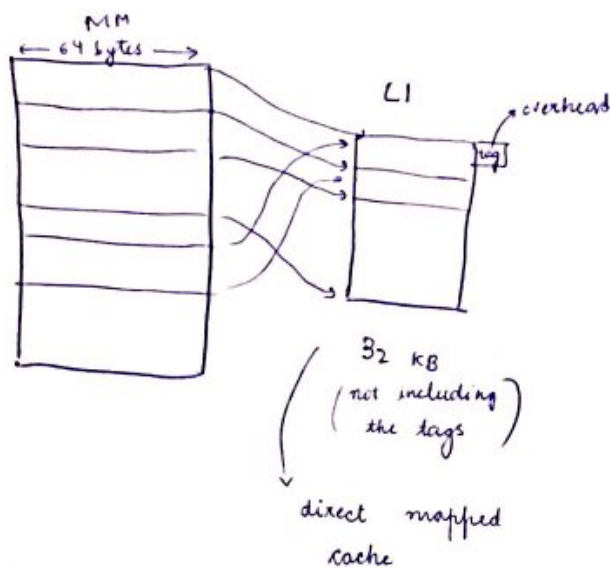 MM
64 bytes
L1
overhead
tag
32 KB
(not including
the tags)
direct mapped
cache